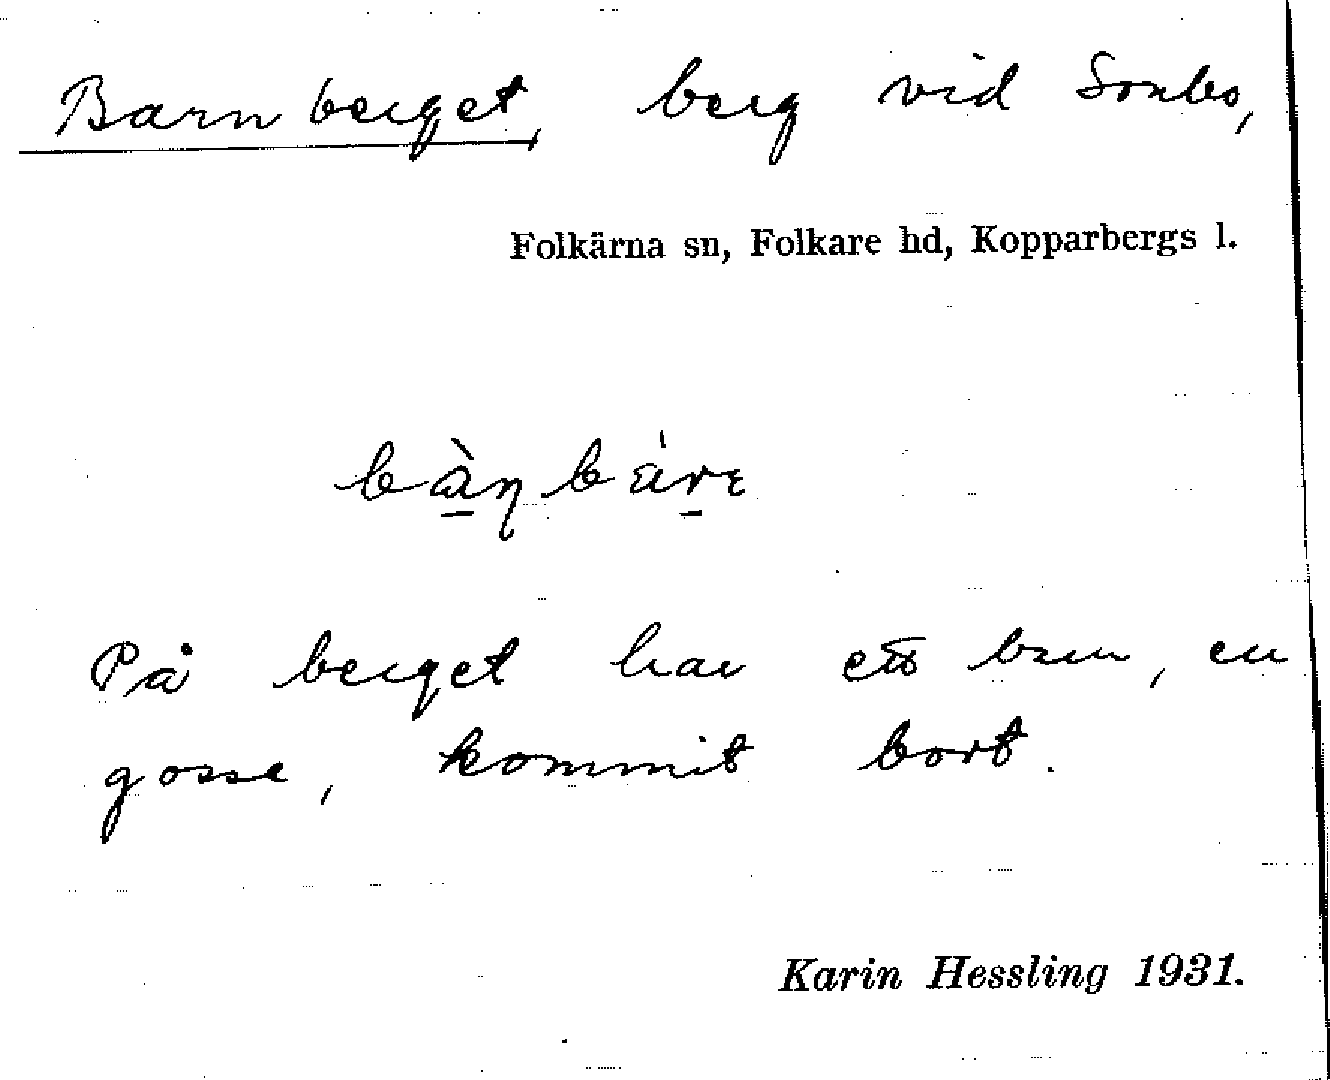 Barnberget, berg vid Sonbo,
Folkärna sn, Folkare hd, Kopparbergs l.
bàṉbáṟε
På berget har ett barn, en
gosse, kommit bort.
Karin Hessling 1931.